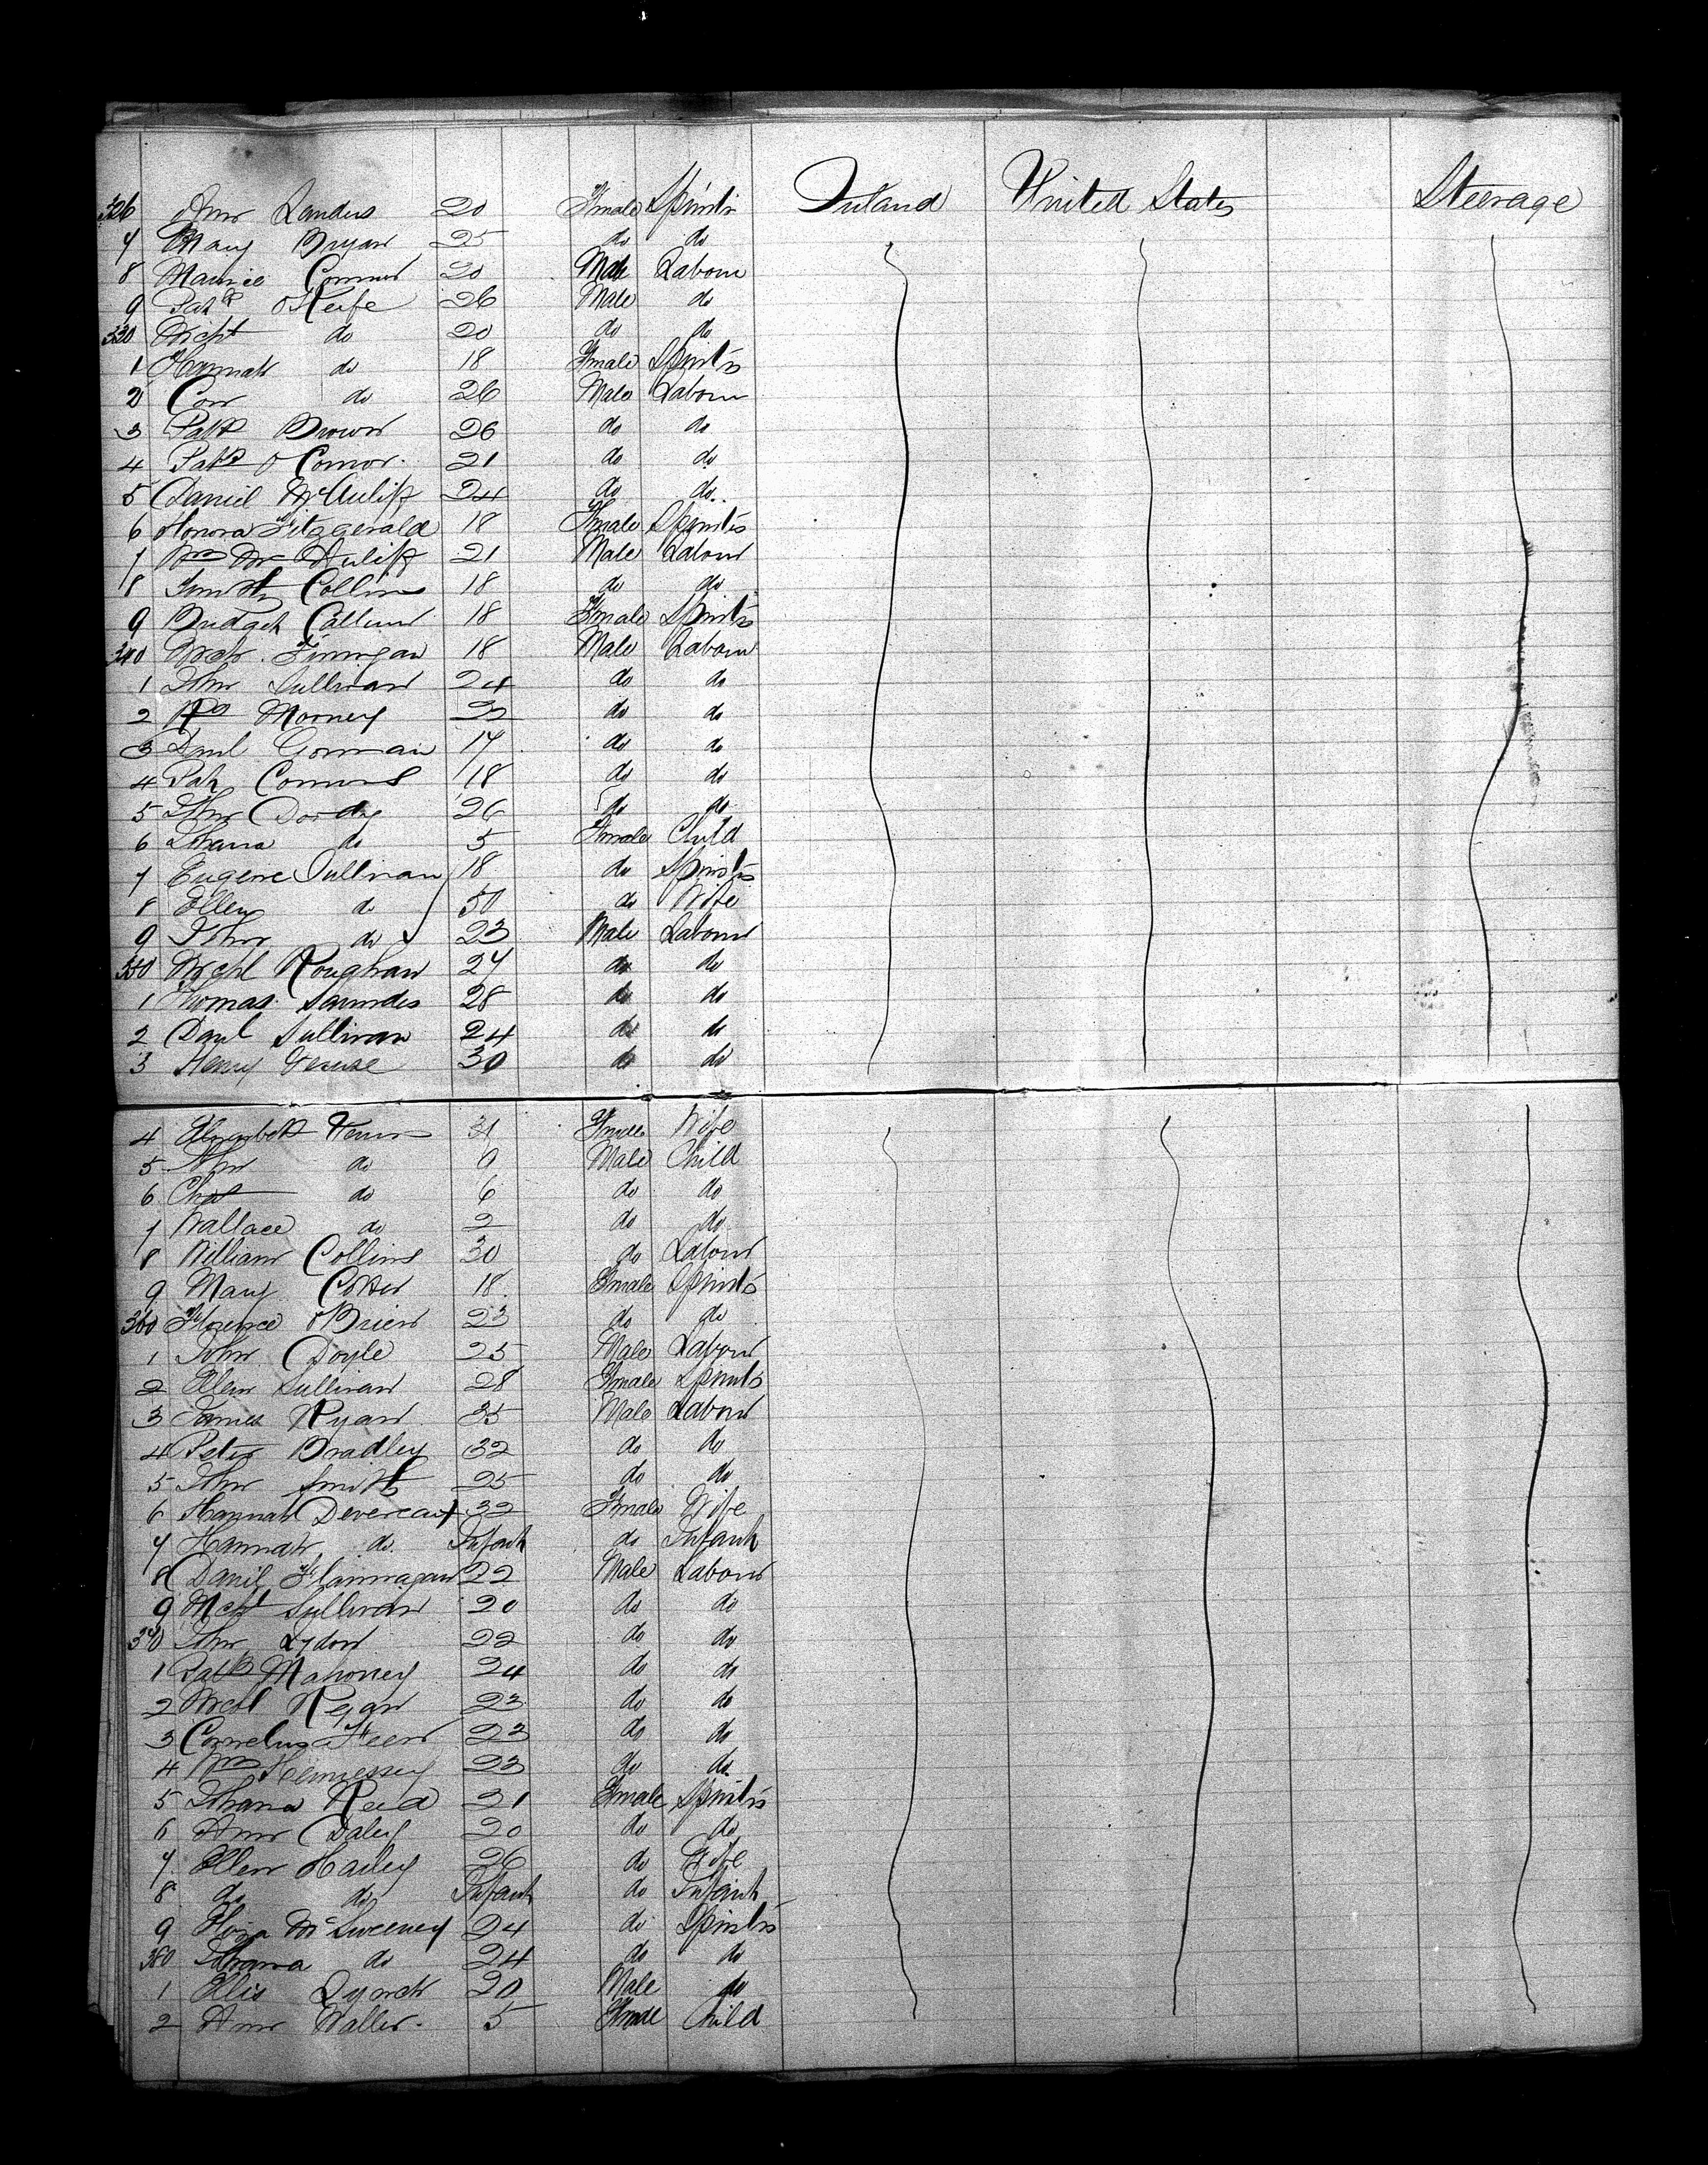 326 Ann Landers 20 Female Spinstr Ireland United States Steerage
7 Mary Bryan 25 do do
8 Maurice Connor 20 Male Labour
9 Patk O'Keefe 26 Male do
330 Mchl do 20 do do
1 Hannah do 18 Female Spinstr
2 Con do 26 Male Labour
3 Patk Brown 26 do do
4 Patk O Connor 21 do do
5 Daniel McAuliff 24 do do
6 Honora Fitzgerald 18 Female Spinstr
7 Wm Mc Auliff 21 Male Labour
8 Timothy Collins 18 do do
9 Bridget 18 Female Spinstr
340 Finnigan 18 Male Labour
1 John Sullivan 24 do do
2 22 do do
3 Danl Gorman 17 do do
4 Pat Connors 18 do do
5 John 26 do do
6 Johana do 5 Female Child
7 Eugene Sullivan 18 do Spinstr
8 Ellen do 50 do Wife
9 John do 23 Male Labour
350 Mchl Roughan 27 do do
1 Thomas Saundes 28 do do
2 Danl Sullivan 24 do do
3 Henry 30 do do
4 Elizabeth 31 Female Wife
5 John do 9 Male Child
6 Chas do 6 do do
7 Wallace do 2 do do
8 William Collins 30 do Labour
9 Mary Cotter 18 Female Spinstr
360 Florence O Brien 23 do do
1 John Doyle 25 Male Labour
2 Ellen Sullivan 28 Female Spinstr
3 James Ryan 35 Male Labour
4 Peter Bradley 32 do do
5 John Smith 25 do do
6 Hannah Devereaux 32 Female Wife
7 Hannah do Infant do Infant
8 Daniel Flannagan 22 Male Labour
9 Mchl Sullivan 20 do do
370 John Lydon 22 do do
1 Patk Mahoney 24 do do
2 Mchl Regan 23 do do
3 Cornelius 23 do do
4 Wm Hennessey 23 do do
5 Johana Reed 21 Female Spinstr
6 Ann Daley 20 do do
7 Ellen Hailey 26 do Wife
8 do do Infant do Infant
9 McSweeney 24 do Spinstr
380 Johanna do 24 do do
1 Ellis Lynch 20 Male do
2 Ann Waller 5 Female Child